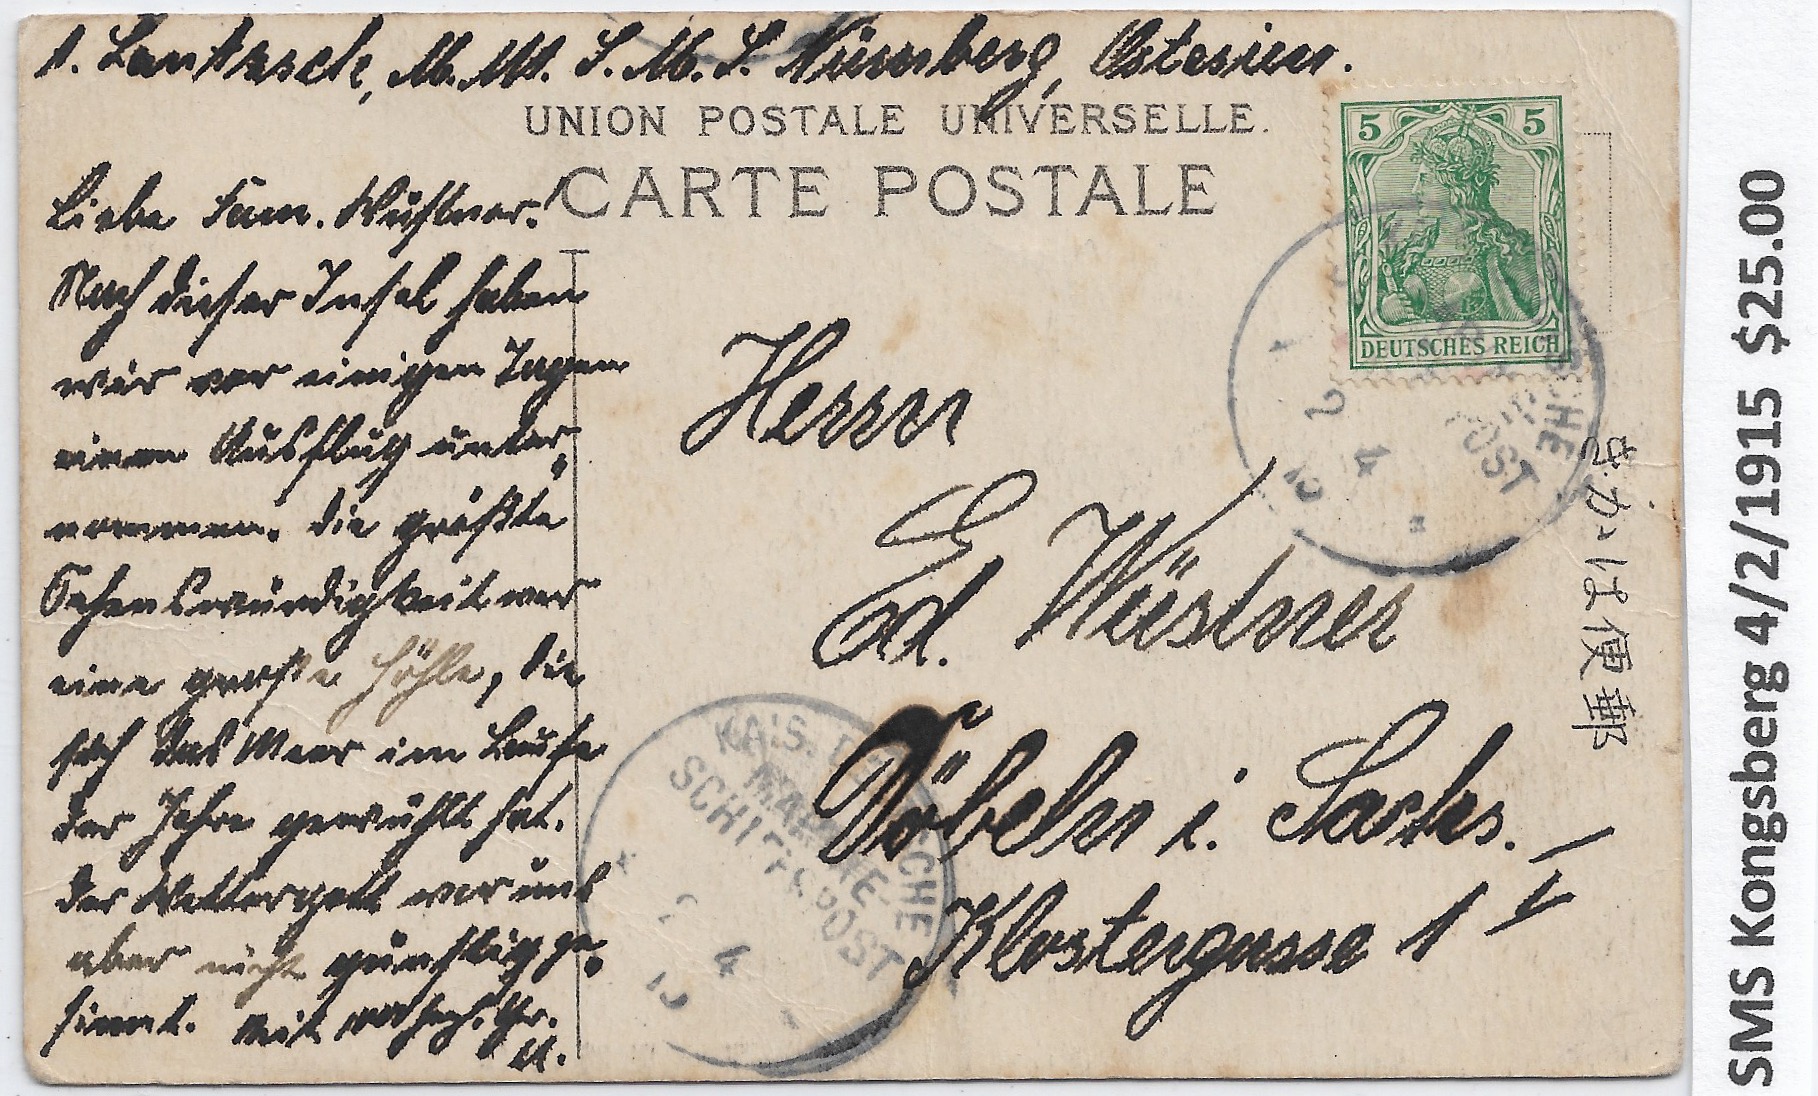 A. Lantzsch, M. Mt. S. M. S. Nürnberg, Ostasien.
UNION POSTALE UNIVERSELLE.
CARTE POSTALE
Liebe Fam. Wüstner!
Nach dieser Insel haben
wir vor einigen Tagen
einen Ausflug unter-
nommen. Die größte
Sehenswürdigkeit war
eine große Höhle, die
sich das Meer im Laufe
der Jahre gewühlt hat.
Der Wettergott war uns
aber nicht günstig ge-
sinnt. Mit
Herrn
Ed. Wüstner
Döbeln i. Sachs.
Klostergasse 1 I
5 5
DEUTSCHES REICH
SCHE
POST
2 4
KAIS. DEUTSCHE
MARINE-
SCHIFFSPOST
2 4
きかは便郵
SMS Kongsberg 4/2/1915 $25.00